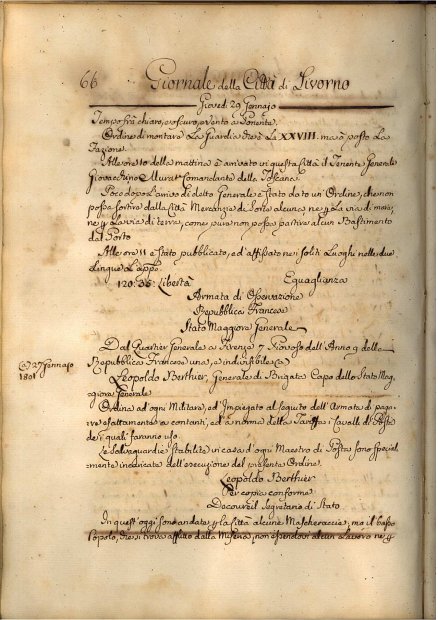 66 Giornale della Città di Livorno
Giovedì 29 Gennaio
Tempo frà chiaro, e oscuro, e vento a Ponente.
Ordine di montare La Guardia La XXVIII. ma à posto La
Fazione.
Alle ore otto della mattina è arrivato in questa Città il Tenente Generale
Giovacchino Murat Comandante della Toscana.
Poco dopo L'arrivo di detto Generale è stato dato un' Ordine, che non
possa sortire dalla Città Mercanzia di sorta alcuna, ne p La via di mare,
ne p La via di terra, come pure non possa partire alcun Bastimento
dal Porto
Alle ore 11 è stato pubblicato, ed affissato nei soliti Luoghi nelle due
Lingue L'app.
120:35: Libertà Eguaglianza
Armata di Osservazione
Repubblica Francese
Stato Maggiore Generale
Dal Quartier Generale a Firenze 7 Piovoso dell'Anno 9 della
27 Gennajo
1801
Repubblica Francese una, e indivisibile
Leopoldo Berthier, Generale di Brigata Capo dello Stato Mag
giore Generale
Ordina ad ogni Militare, ed' Impiegato al seguito dell'Armata di paga-
re esattamente a contanti, ed a norma della Tariffa i Cavalli di Posta
de i quali faranno uso.
Le salvaguardie stabilite in casa d'ogni Maestro di Posta sono special
mente incaricate dell'esecuzione del presente Ordine.
Leopoldo Berthier
Per copia conforme
segretario di Stato
In quest'oggi sono andate p la Città alcune Mascheracce, ma il basso
Popolo, che si trova afflitto dalla Miseria, non essendovi alcun Lavoro ne p